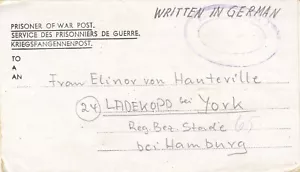 WRITTEN IN GERMAN
PRISONER OF WAR POST.
SERVICE DES PRISONNIERS DE GUERRE.
KRIEGSFANGENNENPOST.
TO
A
AN
Frau Elinor von Hauteville
24 LADEKOPD bei York
Reg. Bez. Stade
bei Hamburg